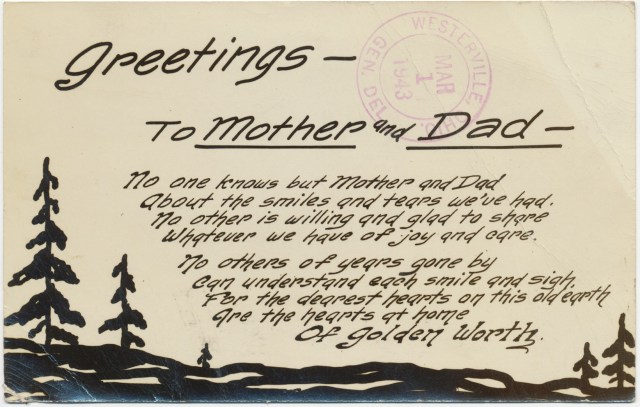 Greetings —
WESTERVILLE, OHIO
GEN. DEL.
MAR
1
1943
To Mother and Dad —
No one knows but Mother and Dad
About the smiles and tears we've had.
No other is willing and glad to share
Whatever we have of joy and care.
No others of years gone by
Can understand each smile and sigh,
For the dearest hearts on this old earth
Are the hearts at home
Of Golden Worth.